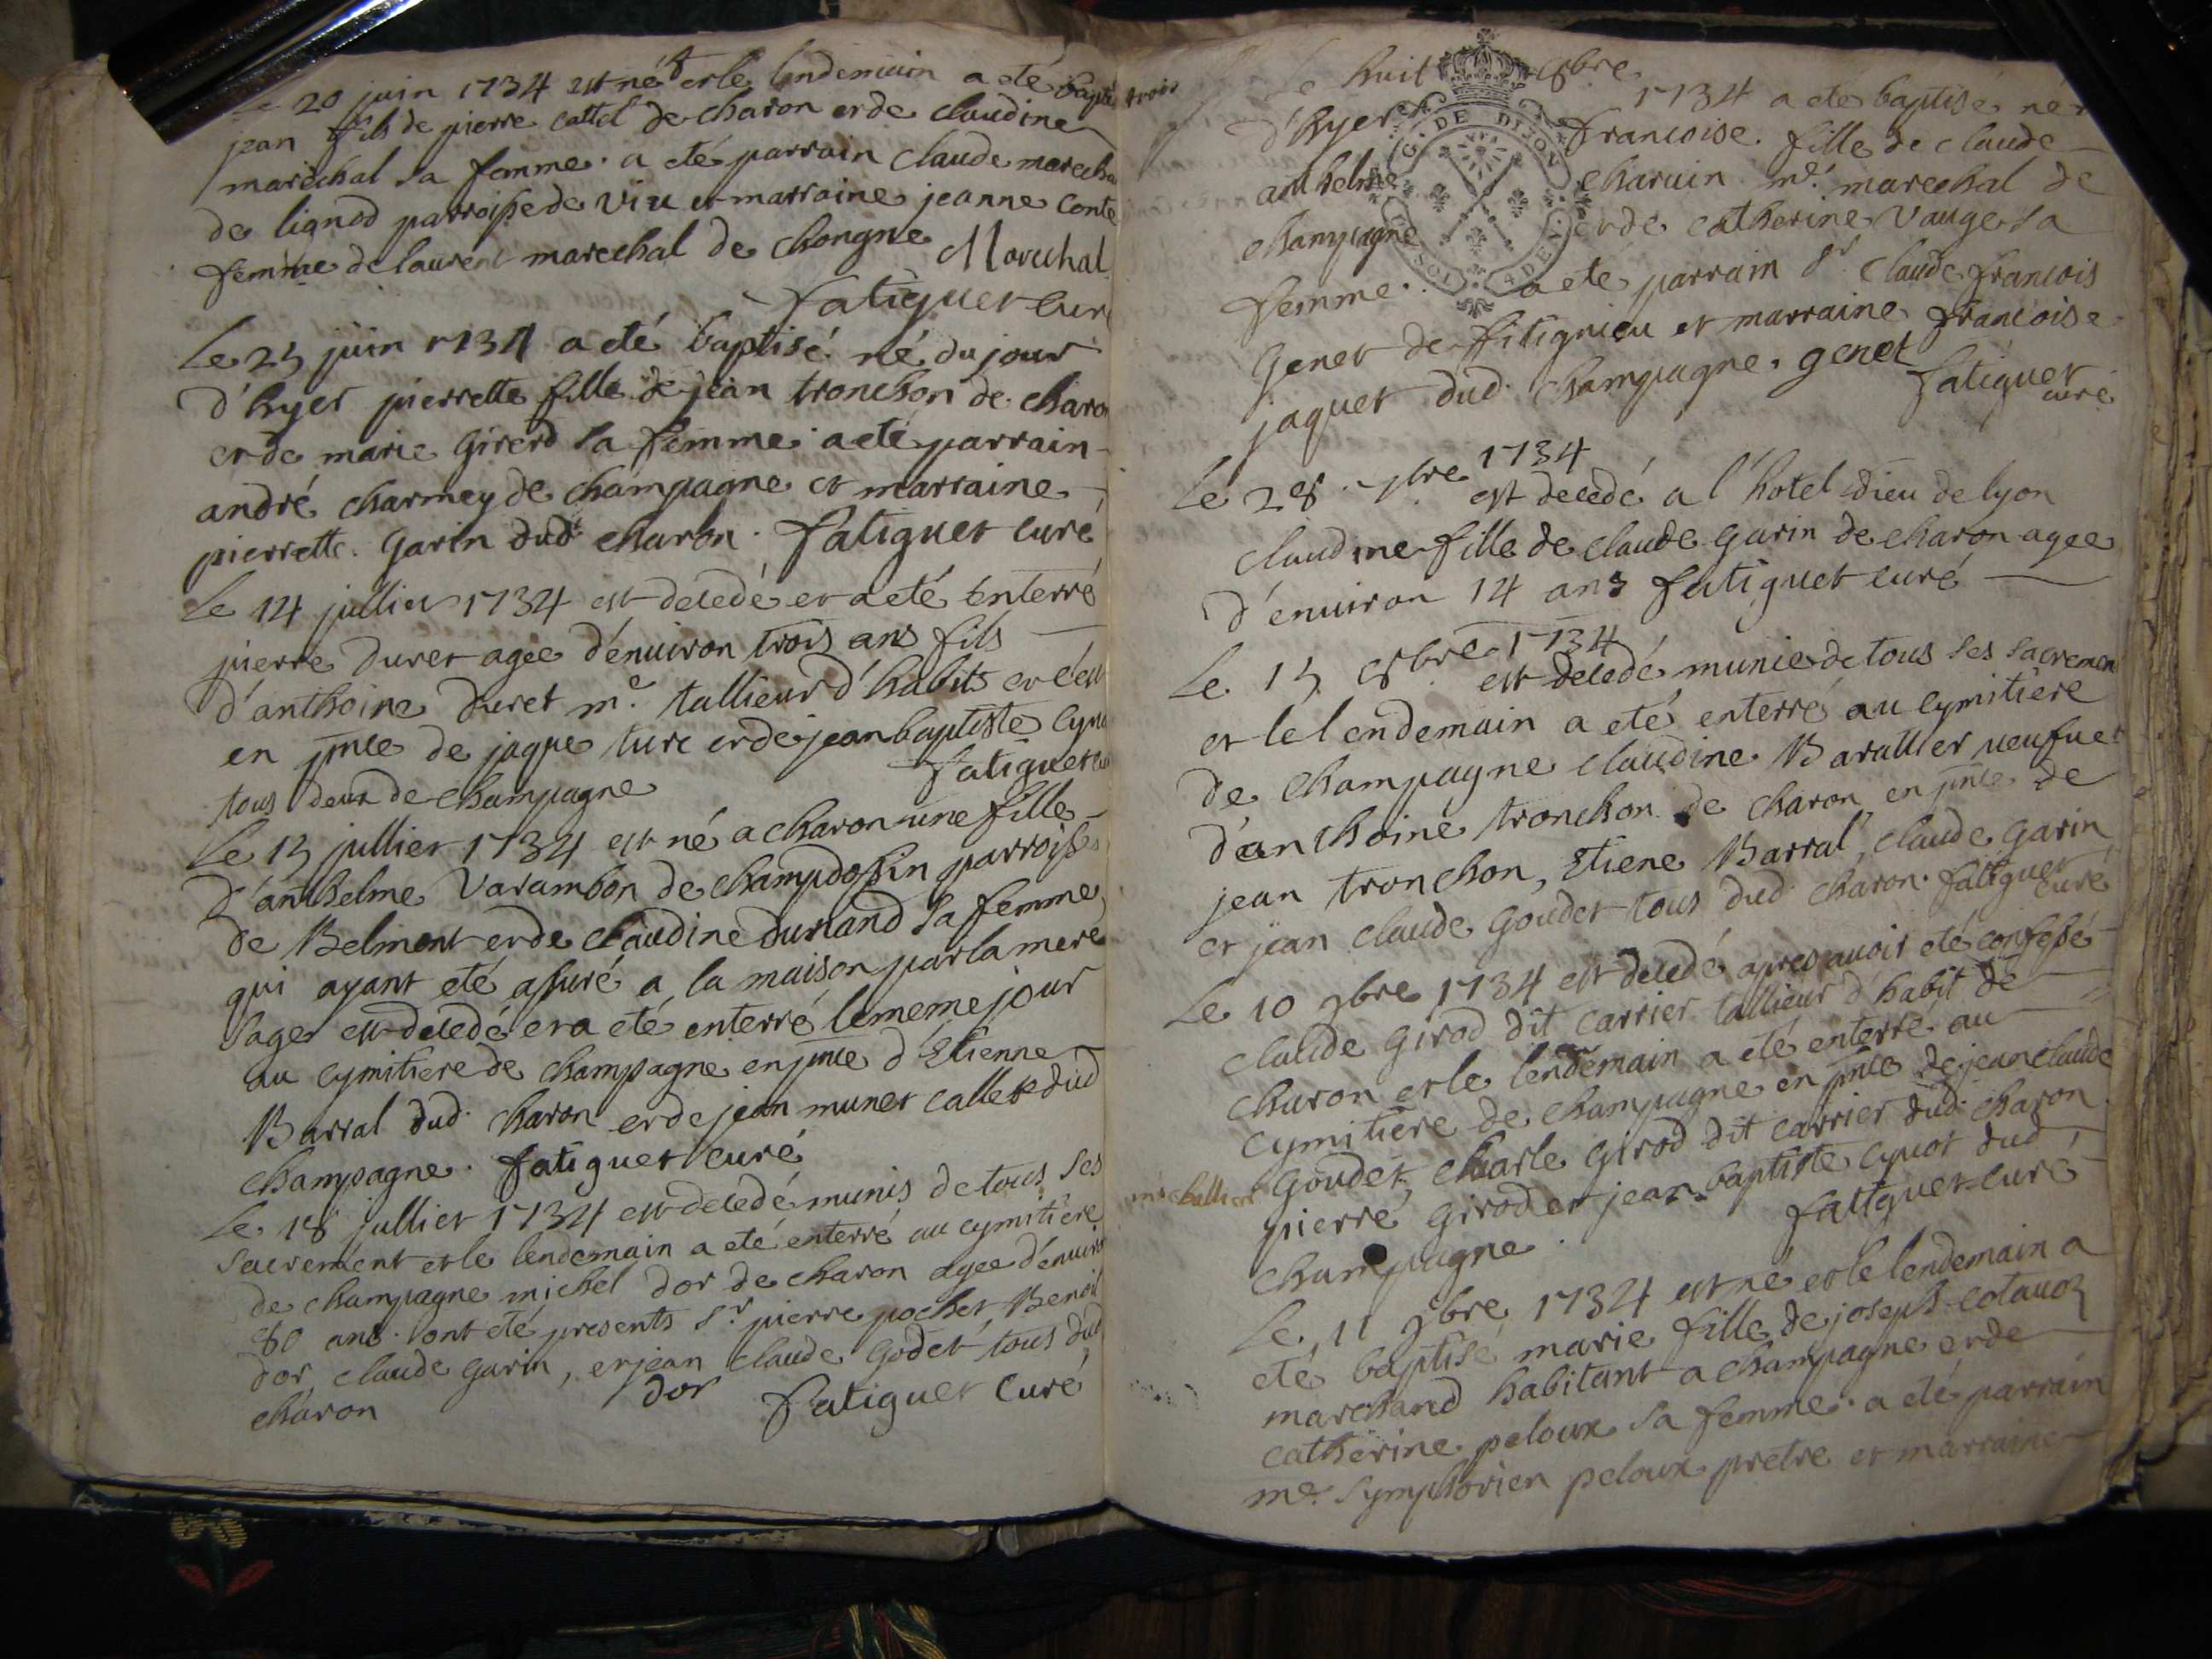 Le 20 juin 1734 est né et le lendemain a eté bapti
jean fils de pierre cattel de charon et de claudine
maréchal sa femme. a eté parrain claude marecha
de lignod parroisse de viu et marraine jeanne conte
femme de laurent marechal de chongne Marechal
fatiguet curé
Le 25 juin 1734 a eté baptisé né du jour
d'hyer pierrette fille de jean tronchon de charon
et de marie Girerd sa femme. a eté parrain
andré charmey de champagne et marraine
pierrette Garin dud. charon. fatiguet curé
Le 14 jullier 1734 est decedé et a eté enterré
pierre Duret agee d'enuiron trois ans fils
d'anthoine Duret me. tallieur d'habits et c'est
en pnce de jaque ture et de jean baptiste cyuo
tous deux de champagne fatiguet cu
Le 15 jullier 1734 est né a charon une fille
d'anthelme Varambon de champdossin parroisse
de Belmont et de claudine Durand sa femme
qui ayant eté assuré a la maison par la mere
sage est decedé et a eté enterré le meme jour
au cymitiere de champagne en pnce d'Etienne
Barral dud. charon et de jean munet callet dud
champagne. fatiguet curé
Le 18 jullier 1734 est decedé munis de tous ses
sacrement et le lendemain a eté enterré au cymitiere
de champagne michel dor de charon agee d'enuiro
80 ans. ont eté presents Sr. pierre pochet, Benoit
dor claude garin, et jean claude Godet tous dud
charon dor fatiguet curé
trois
Le huit 8bre 1734 a eté baptisé né
d'hyer francoise. fille de claude
anthelme charuin me. marechal de
champagne et de catherine Vauge sa
femme. a eté parrain Sr. claude francois
Genet de fitignieu et marraine francoise
jaquet dud. champagne. genet fatiguet curé
G. DE DIJON
Le 28 7bre 1734
est decedé a l'hotel dieu de lyon
claudine fille de claude garin de charon agee
d'enuiron 14 ans fatiguet curé
Le 15 8bre 1734
est decedé munie de tous ses sacremen
et le lendemain a eté enterré au cymitiere
de champagne claudine Barallier ueufue
d'anthoine tronchon de charon en pnce de
jean tronchon, Etiene Barral, claude garin
et jean claude Goudet tous dud. charon. fatiguet curé
Le 10 9bre 1734 est decedé apres auoir eté confessé
claude girod dit carrier tallieur d'habit de
charon et le lendemain a eté enterré au
cymitiere de champagne en pnce de jean claude
Goudet, charle girod dit carrier dud. charon
pierre girod et jean baptiste cyuot dud
champagne. fatiguet curé
Le 11 9bre 1734 est né et le lendemain a
eté baptisé marie fille de joseph cotauoz
marchand habitant a champagne et de
catherine peloux sa femme. a eté parrain
me. symphorien peloux pretre et marraine